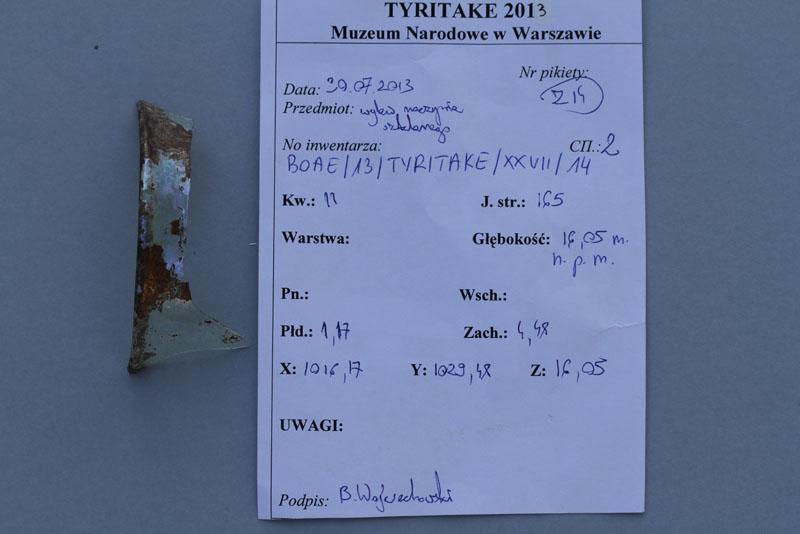 TYRITAKE 2013
Muzeum Narodowe w Warszawie
Nr pikiety:
Data: 30.07.2013
Z14
Przedmiot: wylew naczynia
szklanego
No inwentarza: СП.: 2
BOAE/13/TYRITAKE/XXVII/14
Kw.: 11 J. str.: 165
Warstwa: Głębokość: 16,05 m.
n. p. m.
Pn.: Wsch.:
Płd.: 1,17 Zach.: 4,48
X: 1016,17 Y: 1029,48 Z: 16,05
UWAGI:
Podpis: B. Wojciechowski